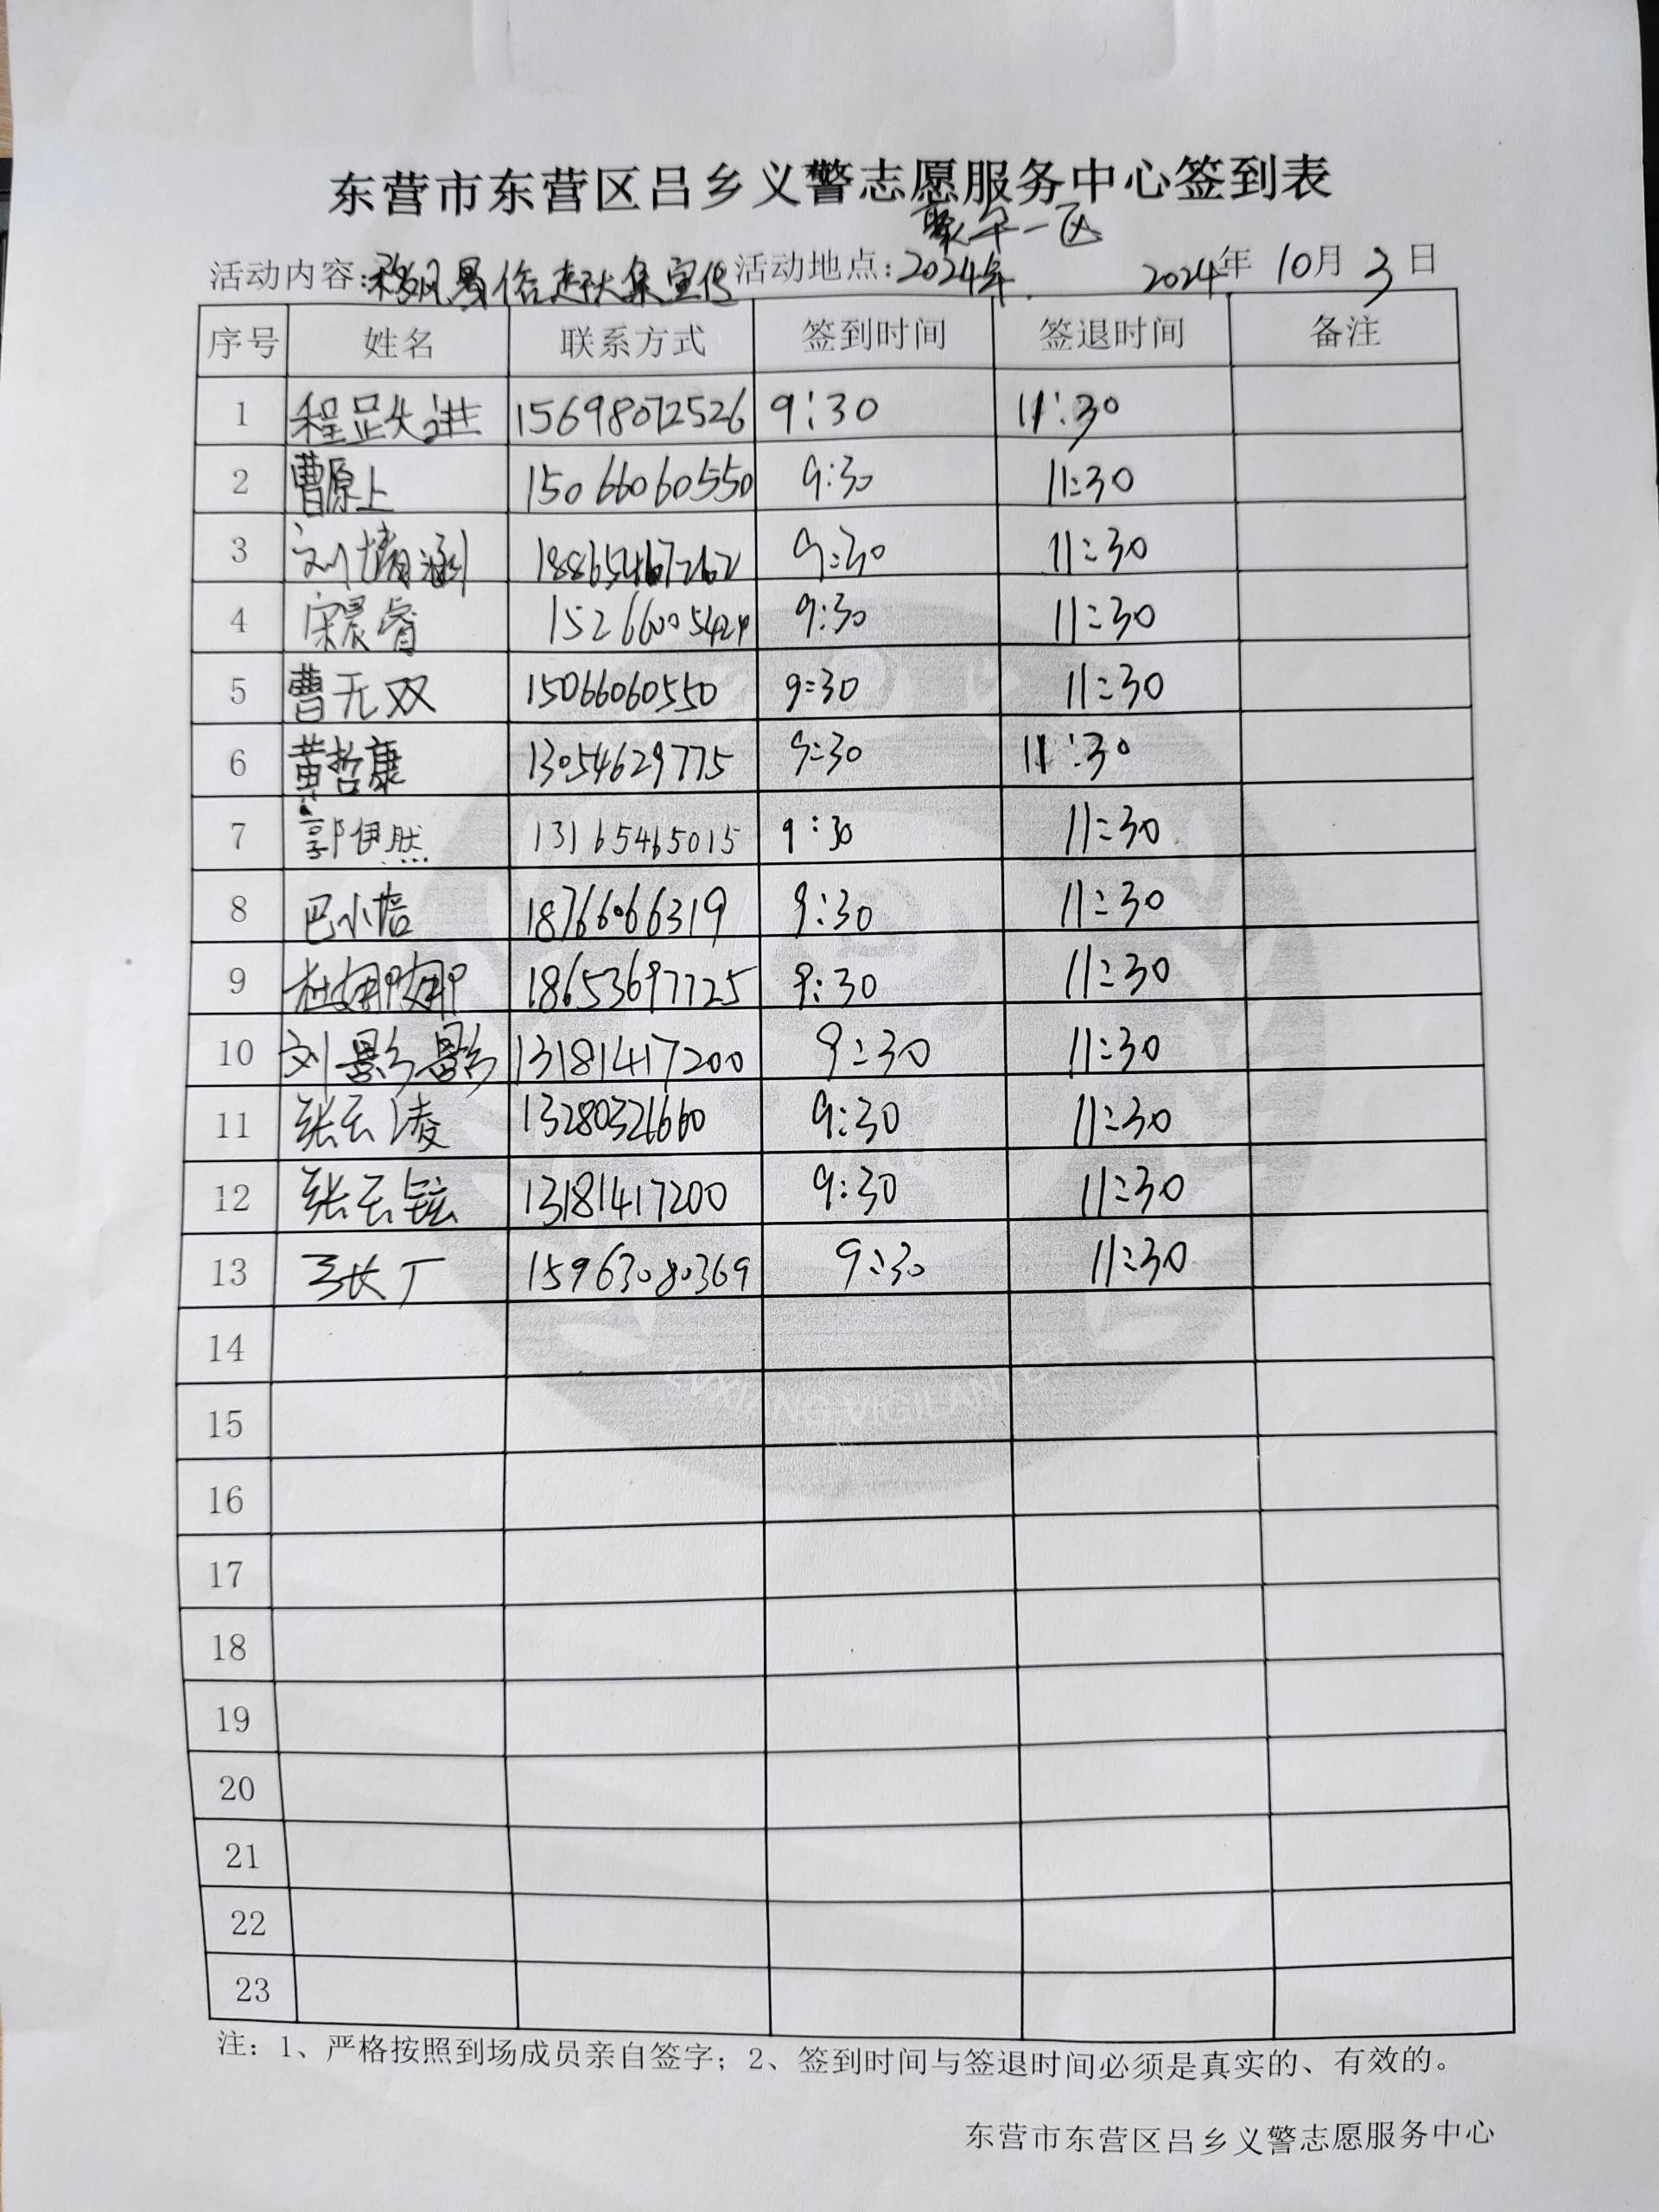 东营市东营区吕乡义警志愿服务中心签到表
一区
活动内容:移风易俗赶大集宣传 活动地点:2024年 2024年 10月 3日
序号 姓名 联系方式 签到时间 签退时间 备注
1 15698072526 9:30 11:30
2 曹原上 15066060550 9:30 11:30
3 刘倩涵 9:30 11:30
4 宋晨睿 9:30 11:30
5 曹无双 15066060550 9:30 11:30
6 黄哲康 13054629775 9:30 11:30
7 郭伊然 13165465015 9:30 11:30
8 巴小倍 18766066319 9:30 11:30
9 杜娜娜 18653697725 9:30 11:30
10 刘影影 13181417200 9:30 11:30
11 张云凌 13280321660 9:30 11:30
12 张云铉 13181417200 9:30 11:30
13 15963080369 9:30 11:30
14
15
LVXIANG VIGILANTES
16
17
18
19
20
21
22
23
注：1、严格按照到场成员亲自签字；2、签到时间与签退时间必须是真实的、有效的。
东营市东营区吕乡义警志愿服务中心